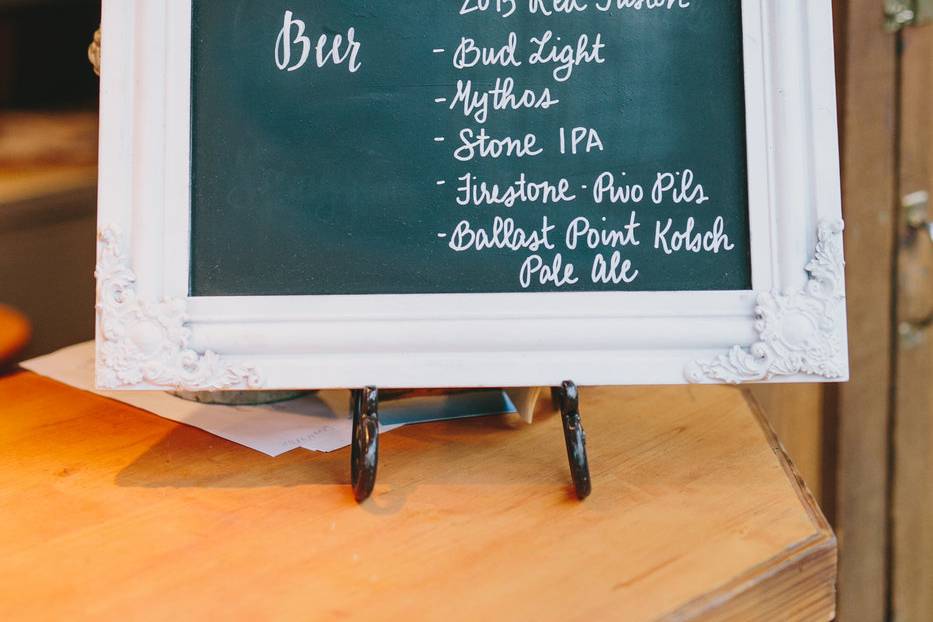 2013 Red Fusion
Beer
- Bud Light
- Mythos
- Stone IPA
- Firestone - Pivo Pils
- Ballast Point Kolsch
Pale Ale